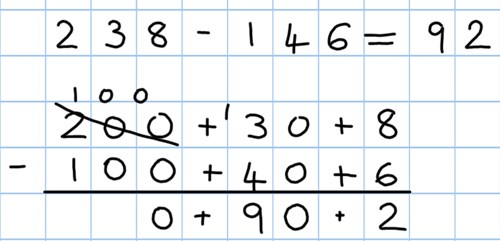 238 - 146 = 92
100
200 + ¹30 + 8
- 100 + 40 + 6
0 + 90 + 2